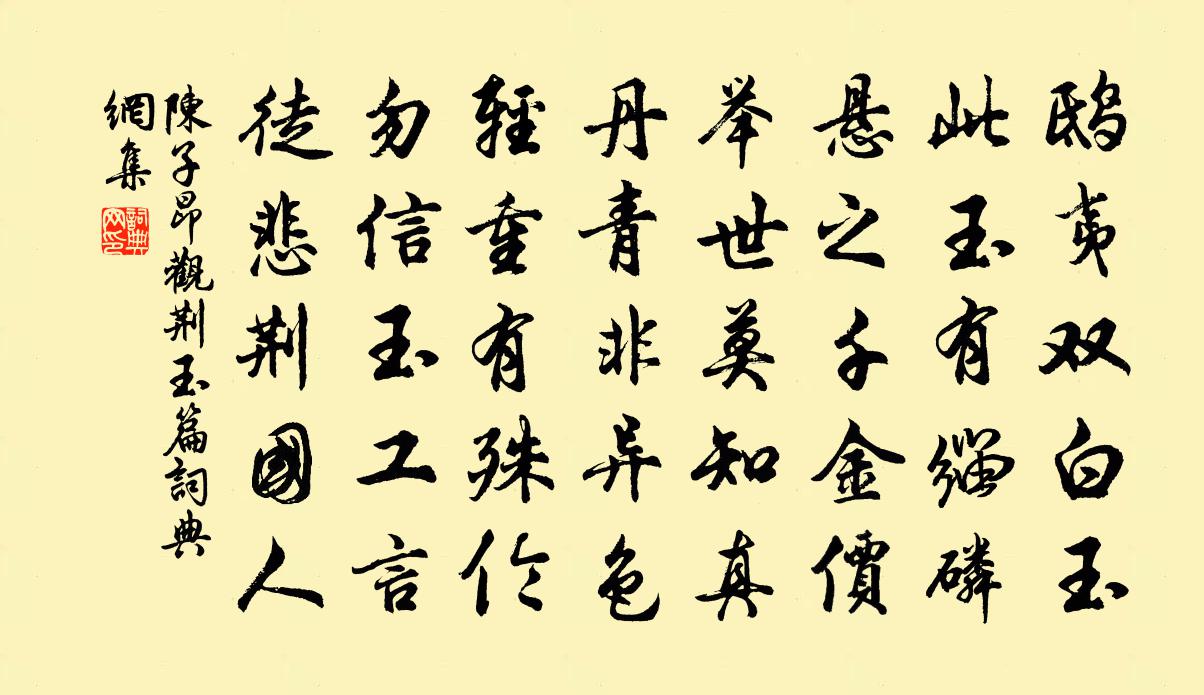 鸱夷双白玉
此玉有缁磷
悬之千金價
举世莫知真
丹青非异色
輕重有殊伦
勿信玉工言
徒悲荆國人
陳子昂觀荆玉篇詞典
網集
詞典
网印